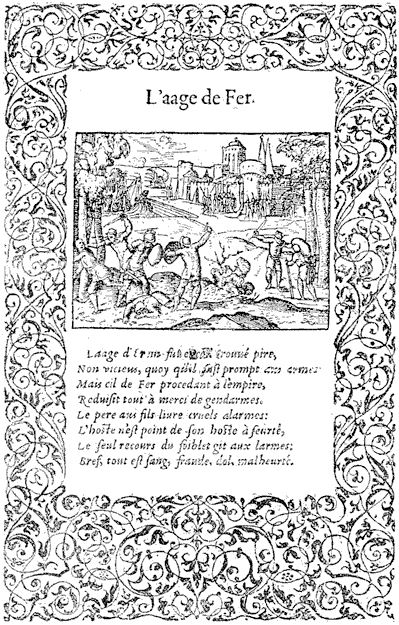 L'aage de Fer.
Laage d'Erain trouué pire,
Non vicieus, quoy qu'il fust prompt aus armes
Mais cil de Fer procedant à l'empire,
Reduisit tout à merci de gendarmes.
Le pere aus fils liure cruels alarmes:
L'hoste n'est point de son hoste à seurté,
Le seul recours du foiblet git aux larmes:
Bref, tout est sang, fraude, dol, malheurté.